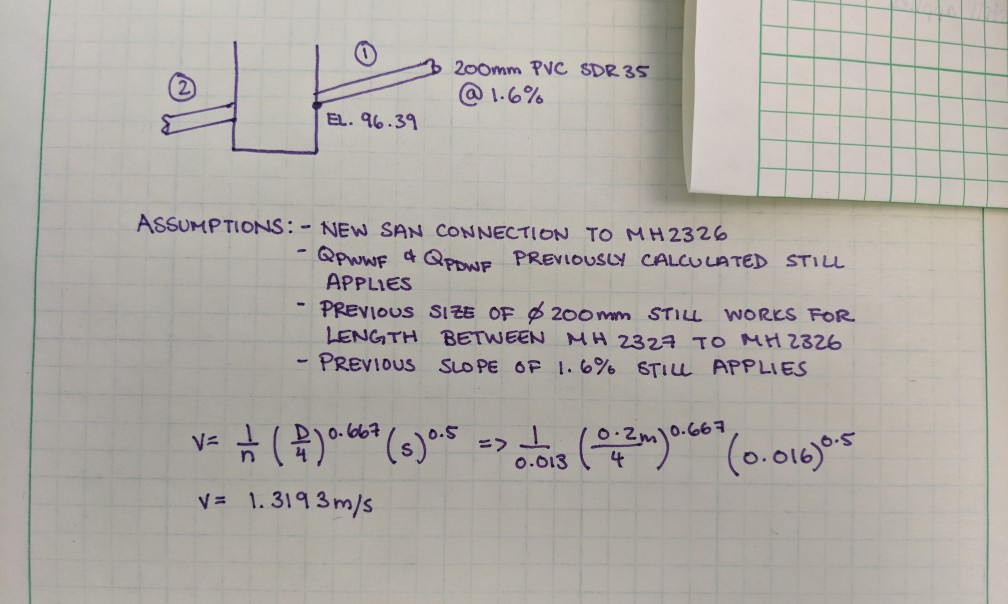 ①
200mm PVC SDR 35
@ 1.6%
②
EL. 96.39
ASSUMPTIONS: - NEW SAN CONNECTION TO MH2326
- QPWWF & QPDWF PREVIOUSLY CALCULATED STILL
APPLIES
- PREVIOUS SIZE OF ø 200mm STILL WORKS FOR
LENGTH BETWEEN MH 2327 TO MH 2326
- PREVIOUS SLOPE OF 1.6% STILL APPLIES
V= 1/n (D/4)^0.667 (s)^0.5 => 1/0.013 (0.2m/4)^0.667 (0.016)^0.5
V= 1.3193m/s